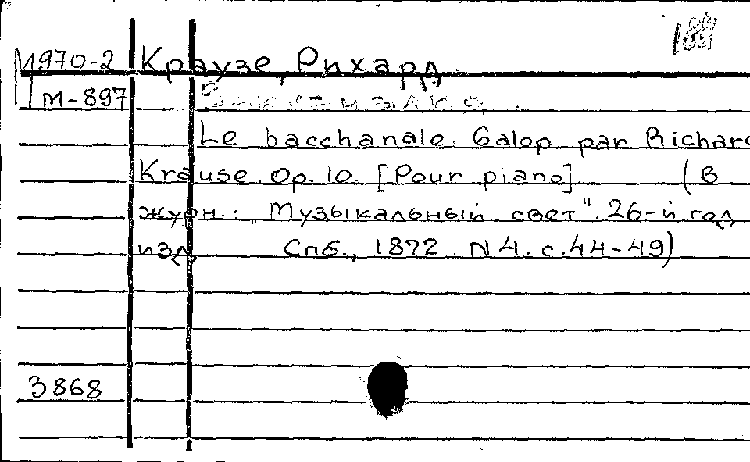 М970-2 Краузе, Рихард
М-897
Le bacchanale. Galop par Richard
Krause. Op. 10. [Pour piano] (В
журн.: „Музыкальный свет". 26-й год
изд. Спб., 1872. N 4. с. 44-49)
3868